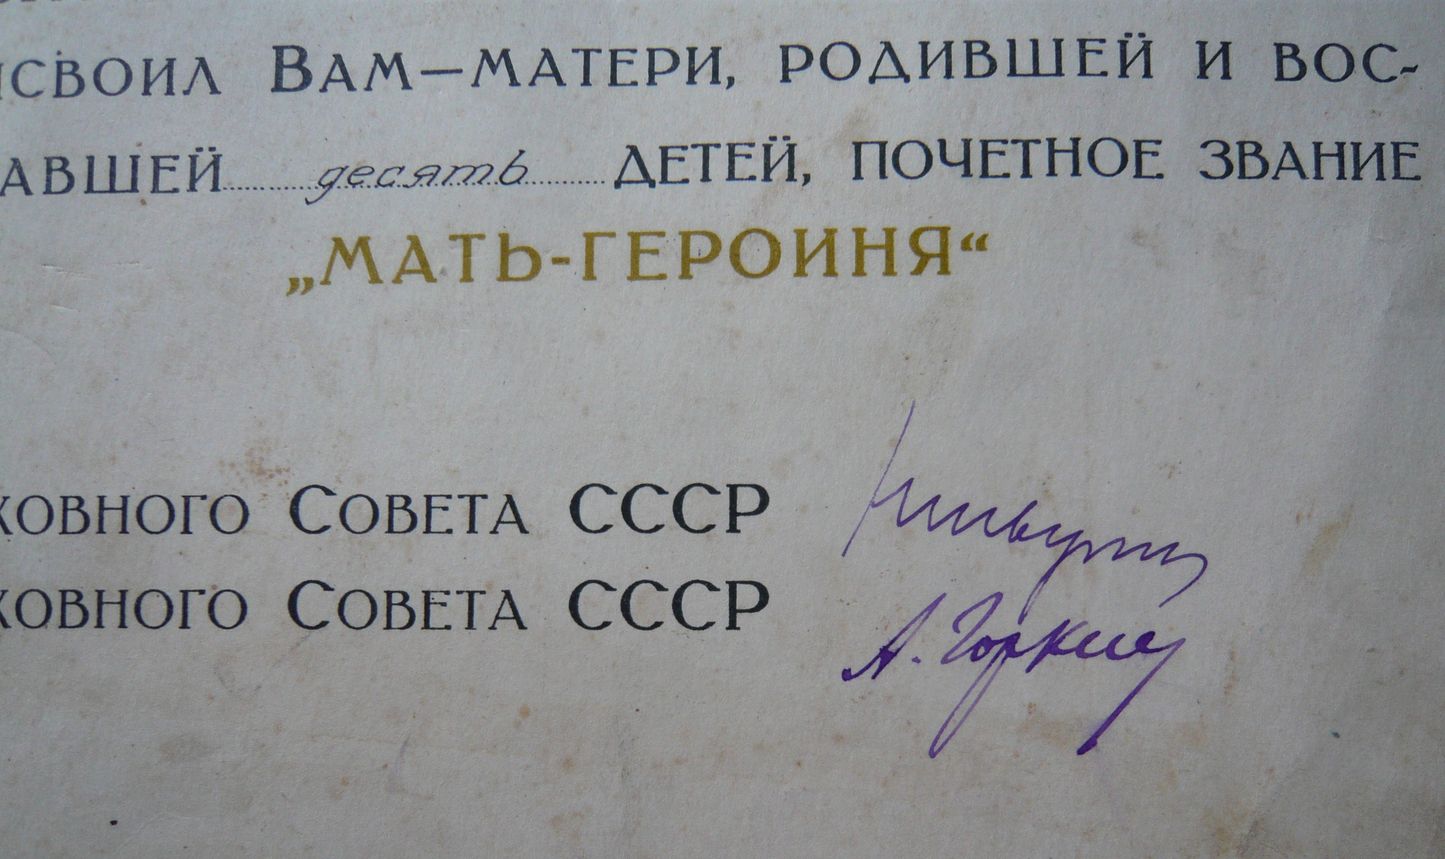 исвоил Вам—матери, родившей и вос-
авшей десять детей, почетное звание
„МАТЬ-ГЕРОИНЯ“
ховного Совета СССР
ховного Совета СССР А. Горкин